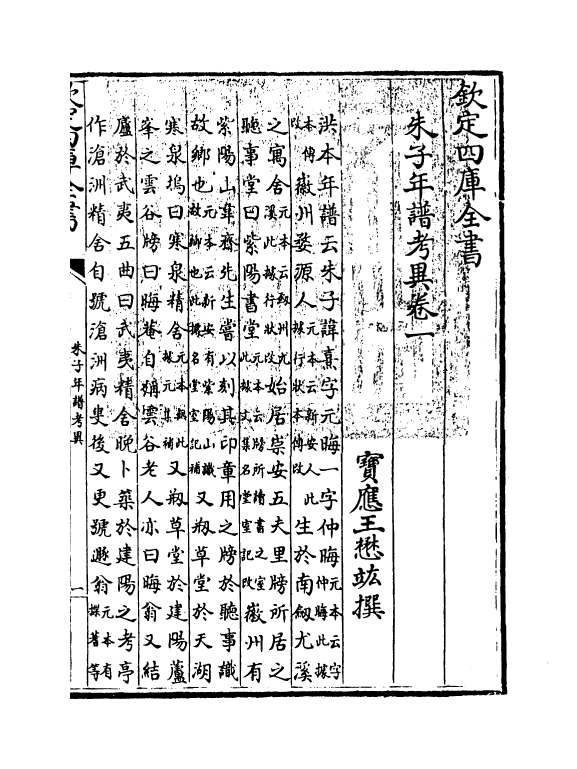 欽定四庫全書
朱子年譜考異卷一
寶應王懋竑撰
洪本年譜云朱子諱熹字元晦一字仲晦元本云字仲晦此據
本傳改徽州婺源人元本云新安人此據行狀本傳改生於南劍尤溪
之寓舍元本云劍州尤溪此據行狀改始居崇安五夫里牓所居之
聽事堂曰紫陽書堂元本云牓所讀書之室此據文集名堂室記改徽州有
紫陽山韋齋先生嘗以刻其印章用之牓於聽事識
故鄉也元本云新安有紫陽山識故鄉也此據名堂室記補又剏草堂於天湖
寒泉塢曰寒泉精舍元本無此據元集補又剏草堂於建陽蘆
峯之雲谷牓曰晦菴自稱雲谷老人亦曰晦翁又結
廬於武夷五曲曰武夷精舍晚卜築於建陽之考亭
作滄洲精舍自號滄洲病叟後又更號遯翁元本有撰著等
欽定四庫全書
朱子年譜考異
一